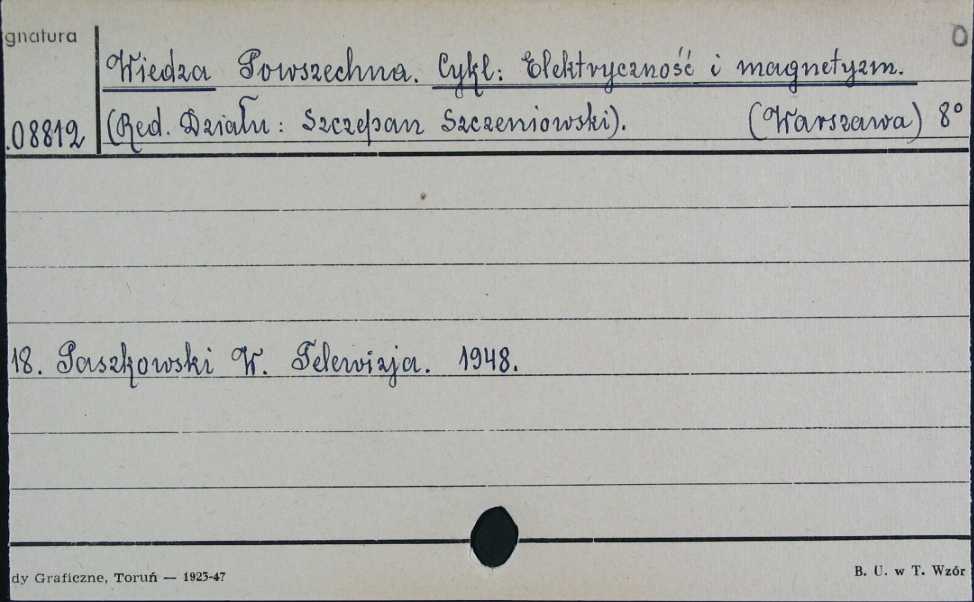 gnatura
O
Wiedza Powszechna. Cykl: Elektryczność i magnetyzm.
.08812 (Red. Działu: Szczepan Szczeniowski). (Warszawa) 8°
18. Paszkowski W. Telewizja. 1948.
dy Graficzne, Toruń — 1923-47
B. U. w T. Wzór